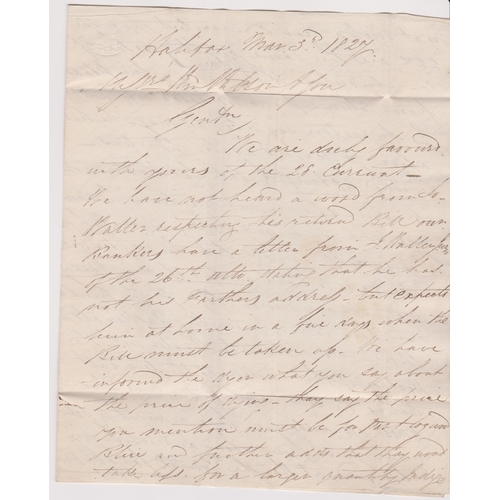 Halifax Mar. 3d. 1827.
Messrs
Gentn
We are duly favoured
with yours of the 28 Currant—
We have not heard a word from
Walter respecting his return Bill our
Bankers have a letter from
of the 26th ulto stating that he has
not his Farthers address— but expects
him at home in a few days when the
Bill must be taken up. We have
informed the dyer what you say about
the price of they say the price
you mention must be for
Blue and further adds that they
take up. for a larger quantity